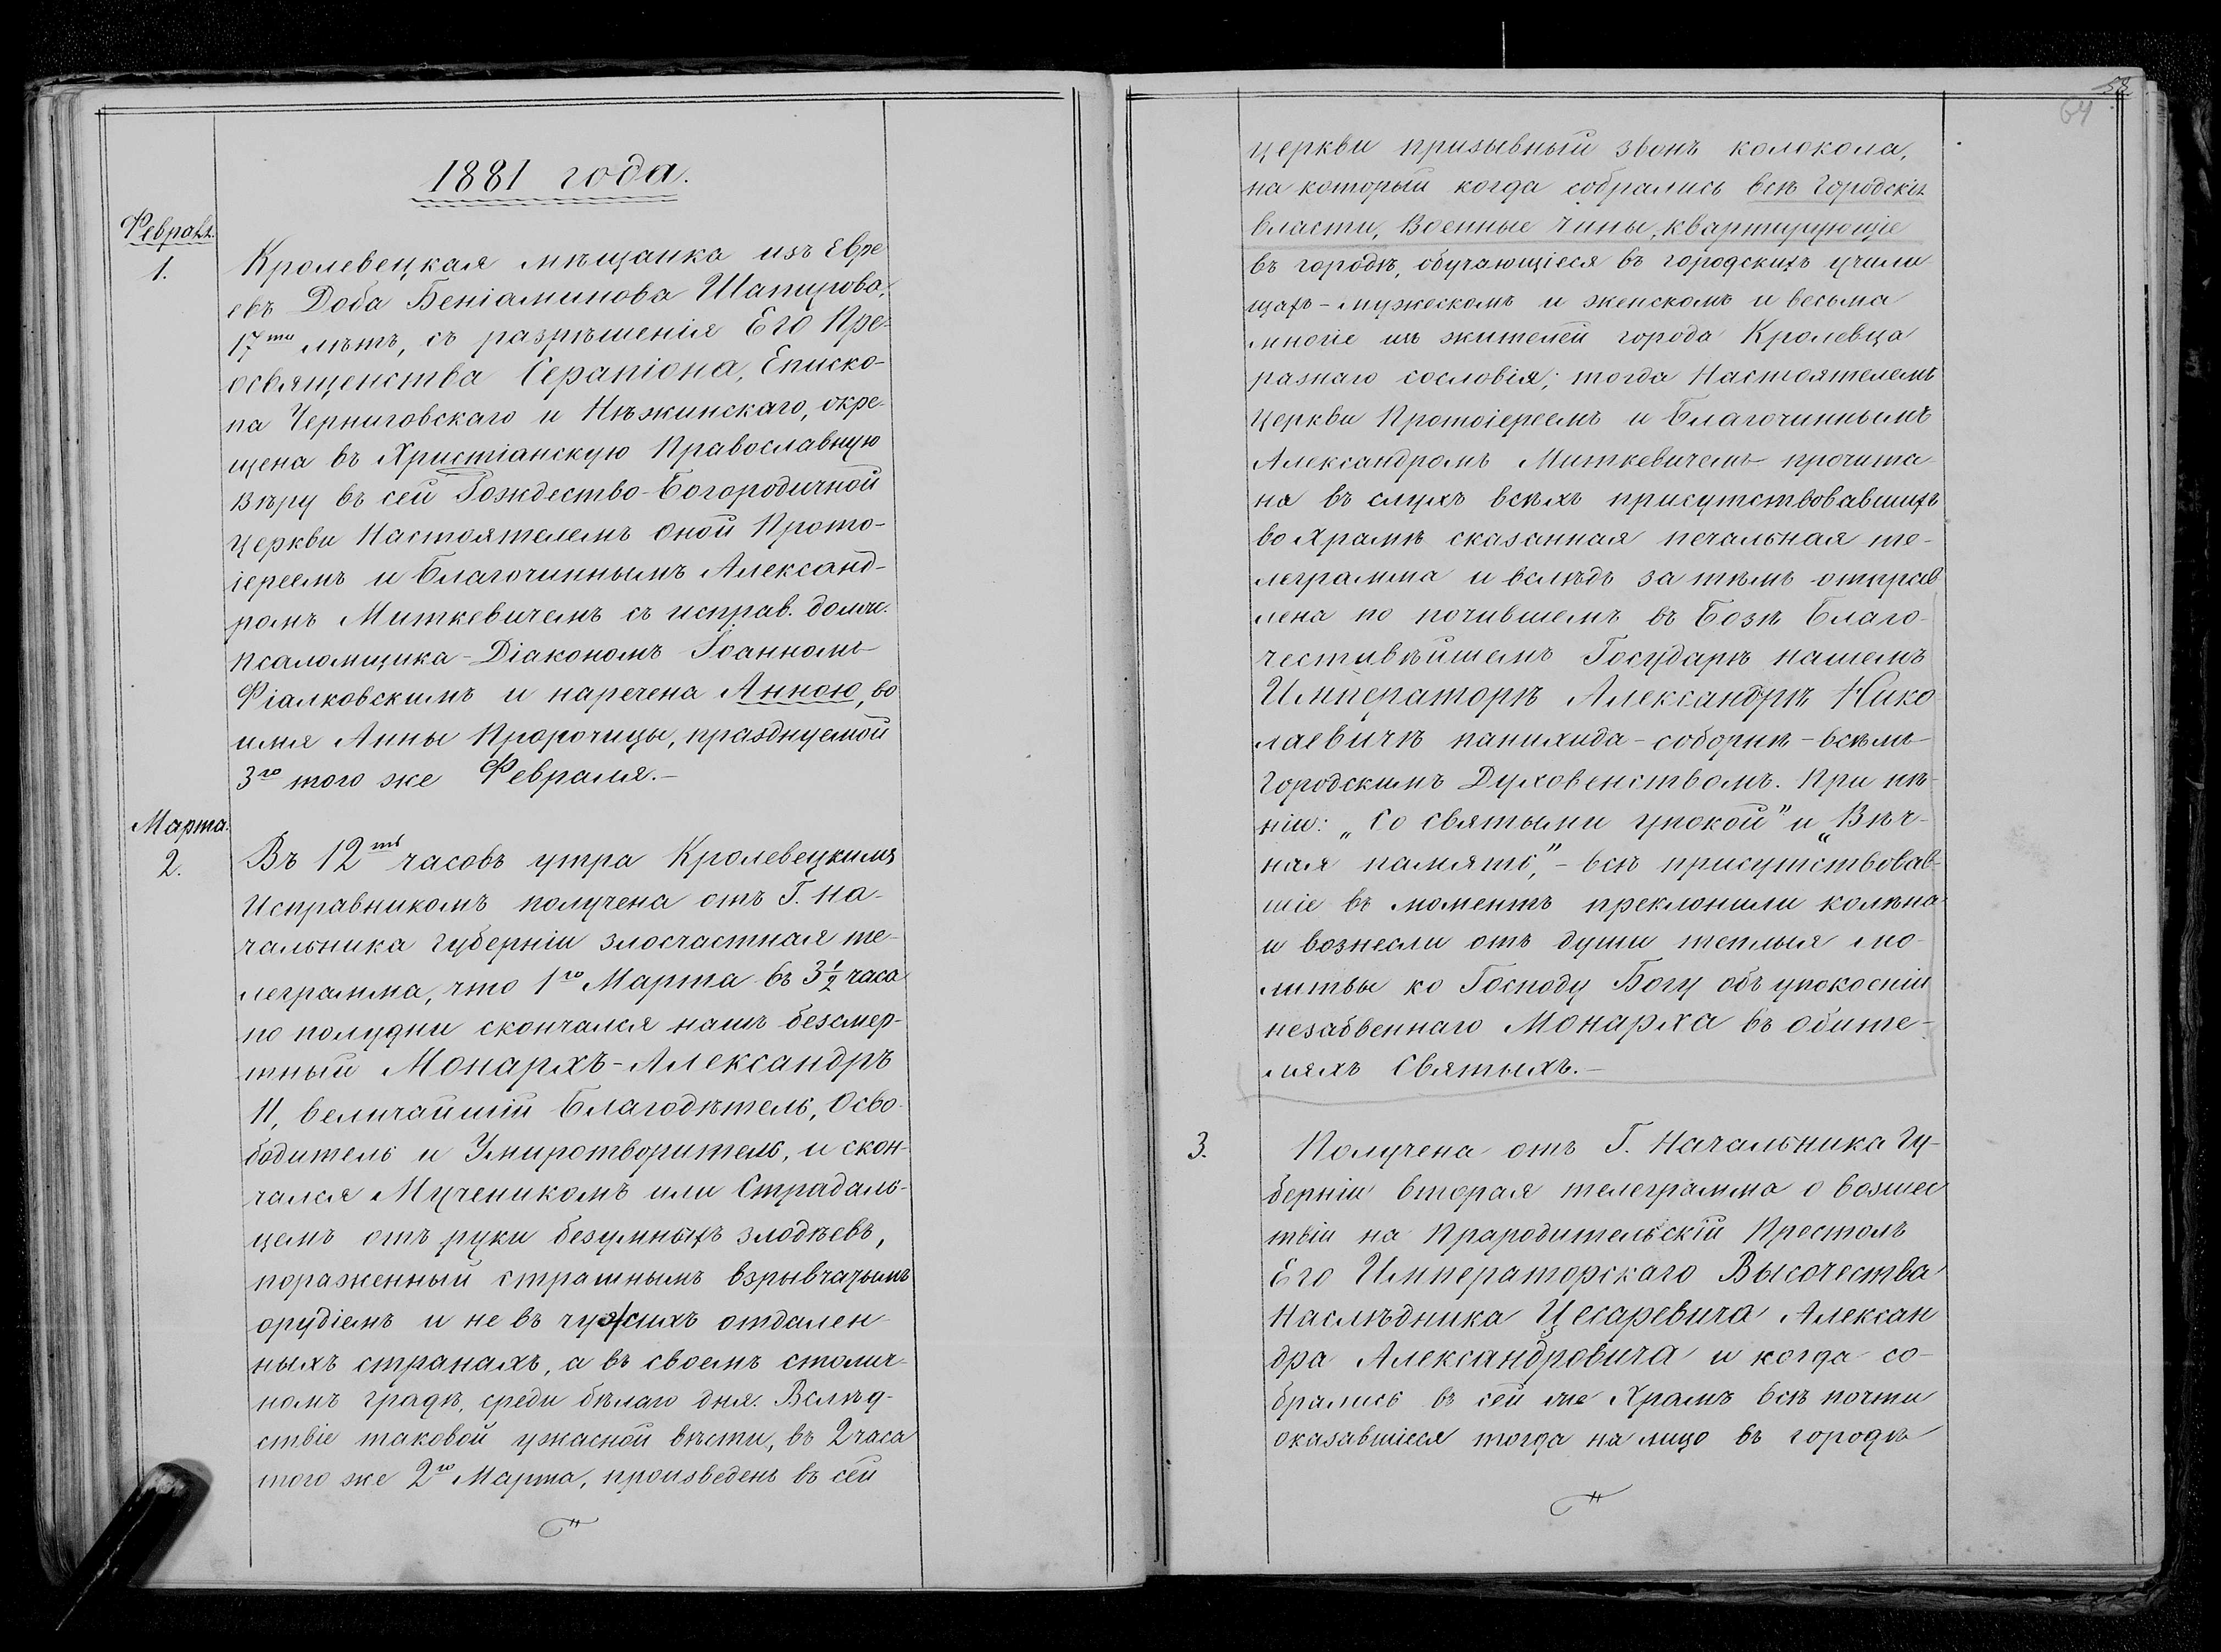 1881 года.
Февраля.
1.
Кролевецкая мѣщанка изъ Евре
евъ Доба Беніаминова Шапирова,
17ти лѣтъ, съ разрѣшенія Его Пре-
освященства Серапіона, Еписко-
па Черниговскаго и Нѣжинскаго, окре-
щена въ Христіанскую Православную
Вѣру въ сей Рождество-Богородичной
церкви Настоятелемъ оной Прото-
іереемъ и Благочиннымъ Александ-
ромъ Миткевичемъ съ исправ. должн.
Псаломщика-Діакономъ Іоанномъ
Фіалковскимъ и наречена Анною, во
имя Анны Пророчицы, празднуемой
3го того же Февраля.-
Марта.
2.
Въ 12ть часовъ утра Кролевецкимъ
Исправникомъ получена отъ Г. На-
чальника губерніи злосчастная те-
леграмма, что 1го Марта въ 3½ часа
по полудни скончался нашъ безсмер-
тный Монархъ-Александръ
II, величайшій Благодѣтель, Осво-
бодитель и Умиротворитель, и скон-
чался Мученикомъ или Страдаль-
цемъ отъ руки безумныхъ злодѣевъ,
пораженный страшнымъ взрывчатымъ
орудіемъ и не въ чужихъ отдален-
ныхъ странахъ, а въ своемъ столич-
номъ градѣ, среди бѣлаго дня. Вслѣд-
ствіе таковой ужасной вѣсти, въ 2 часа
того же 2го Марта, произведенъ въ сей
58
64
церкви призывный звонъ колокола,
на который когда собрались всѣ Городскія
власти, Военные чины, квартирующіе
въ городѣ, обучающіеся въ городскихъ учили
щахъ - мужескомъ и женскомъ и весьма
многіе изъ жителей города Кролевца
разнаго сословія; тогда Настоятелемъ
церкви Протоіереемъ и Благочиннымъ
Александромъ Миткевичемъ прочита
на въ слухъ всѣхъ присутствовавшихъ
во Храмѣ сказанная печальная те-
леграмма и вслѣдъ за тѣмъ отправ
лена по почившемъ въ Бозѣ Благо-
честивѣйшемъ Государѣ нашемъ
Императорѣ Александрѣ Нико
лаевичѣ панихида - соборнѣ - всѣмъ
Городскимъ Духовенствомъ. При пѣ-
ніи: „Со святыми упокой" и „Вѣч-
ная память," - всѣ присутствовав-
шіе въ моментъ преклонили колѣна
и вознесли отъ души теплыя мо-
литвы ко Господу Богу объ упокоеніи
незабвеннаго Монарха въ обите-
ляхъ Святыхъ.-
3.
Получена отъ Г. Начальника Гу-
берніи вторая телеграмма о возшес
твіи на Прародительскій Престолъ
Его Императорскаго Высочества
Наслѣдника Цесаревича Алексан
дра Александровича и когда со-
брались въ сей же Храмъ всѣ почти
оказавшіеся тогда на лицо въ городѣ